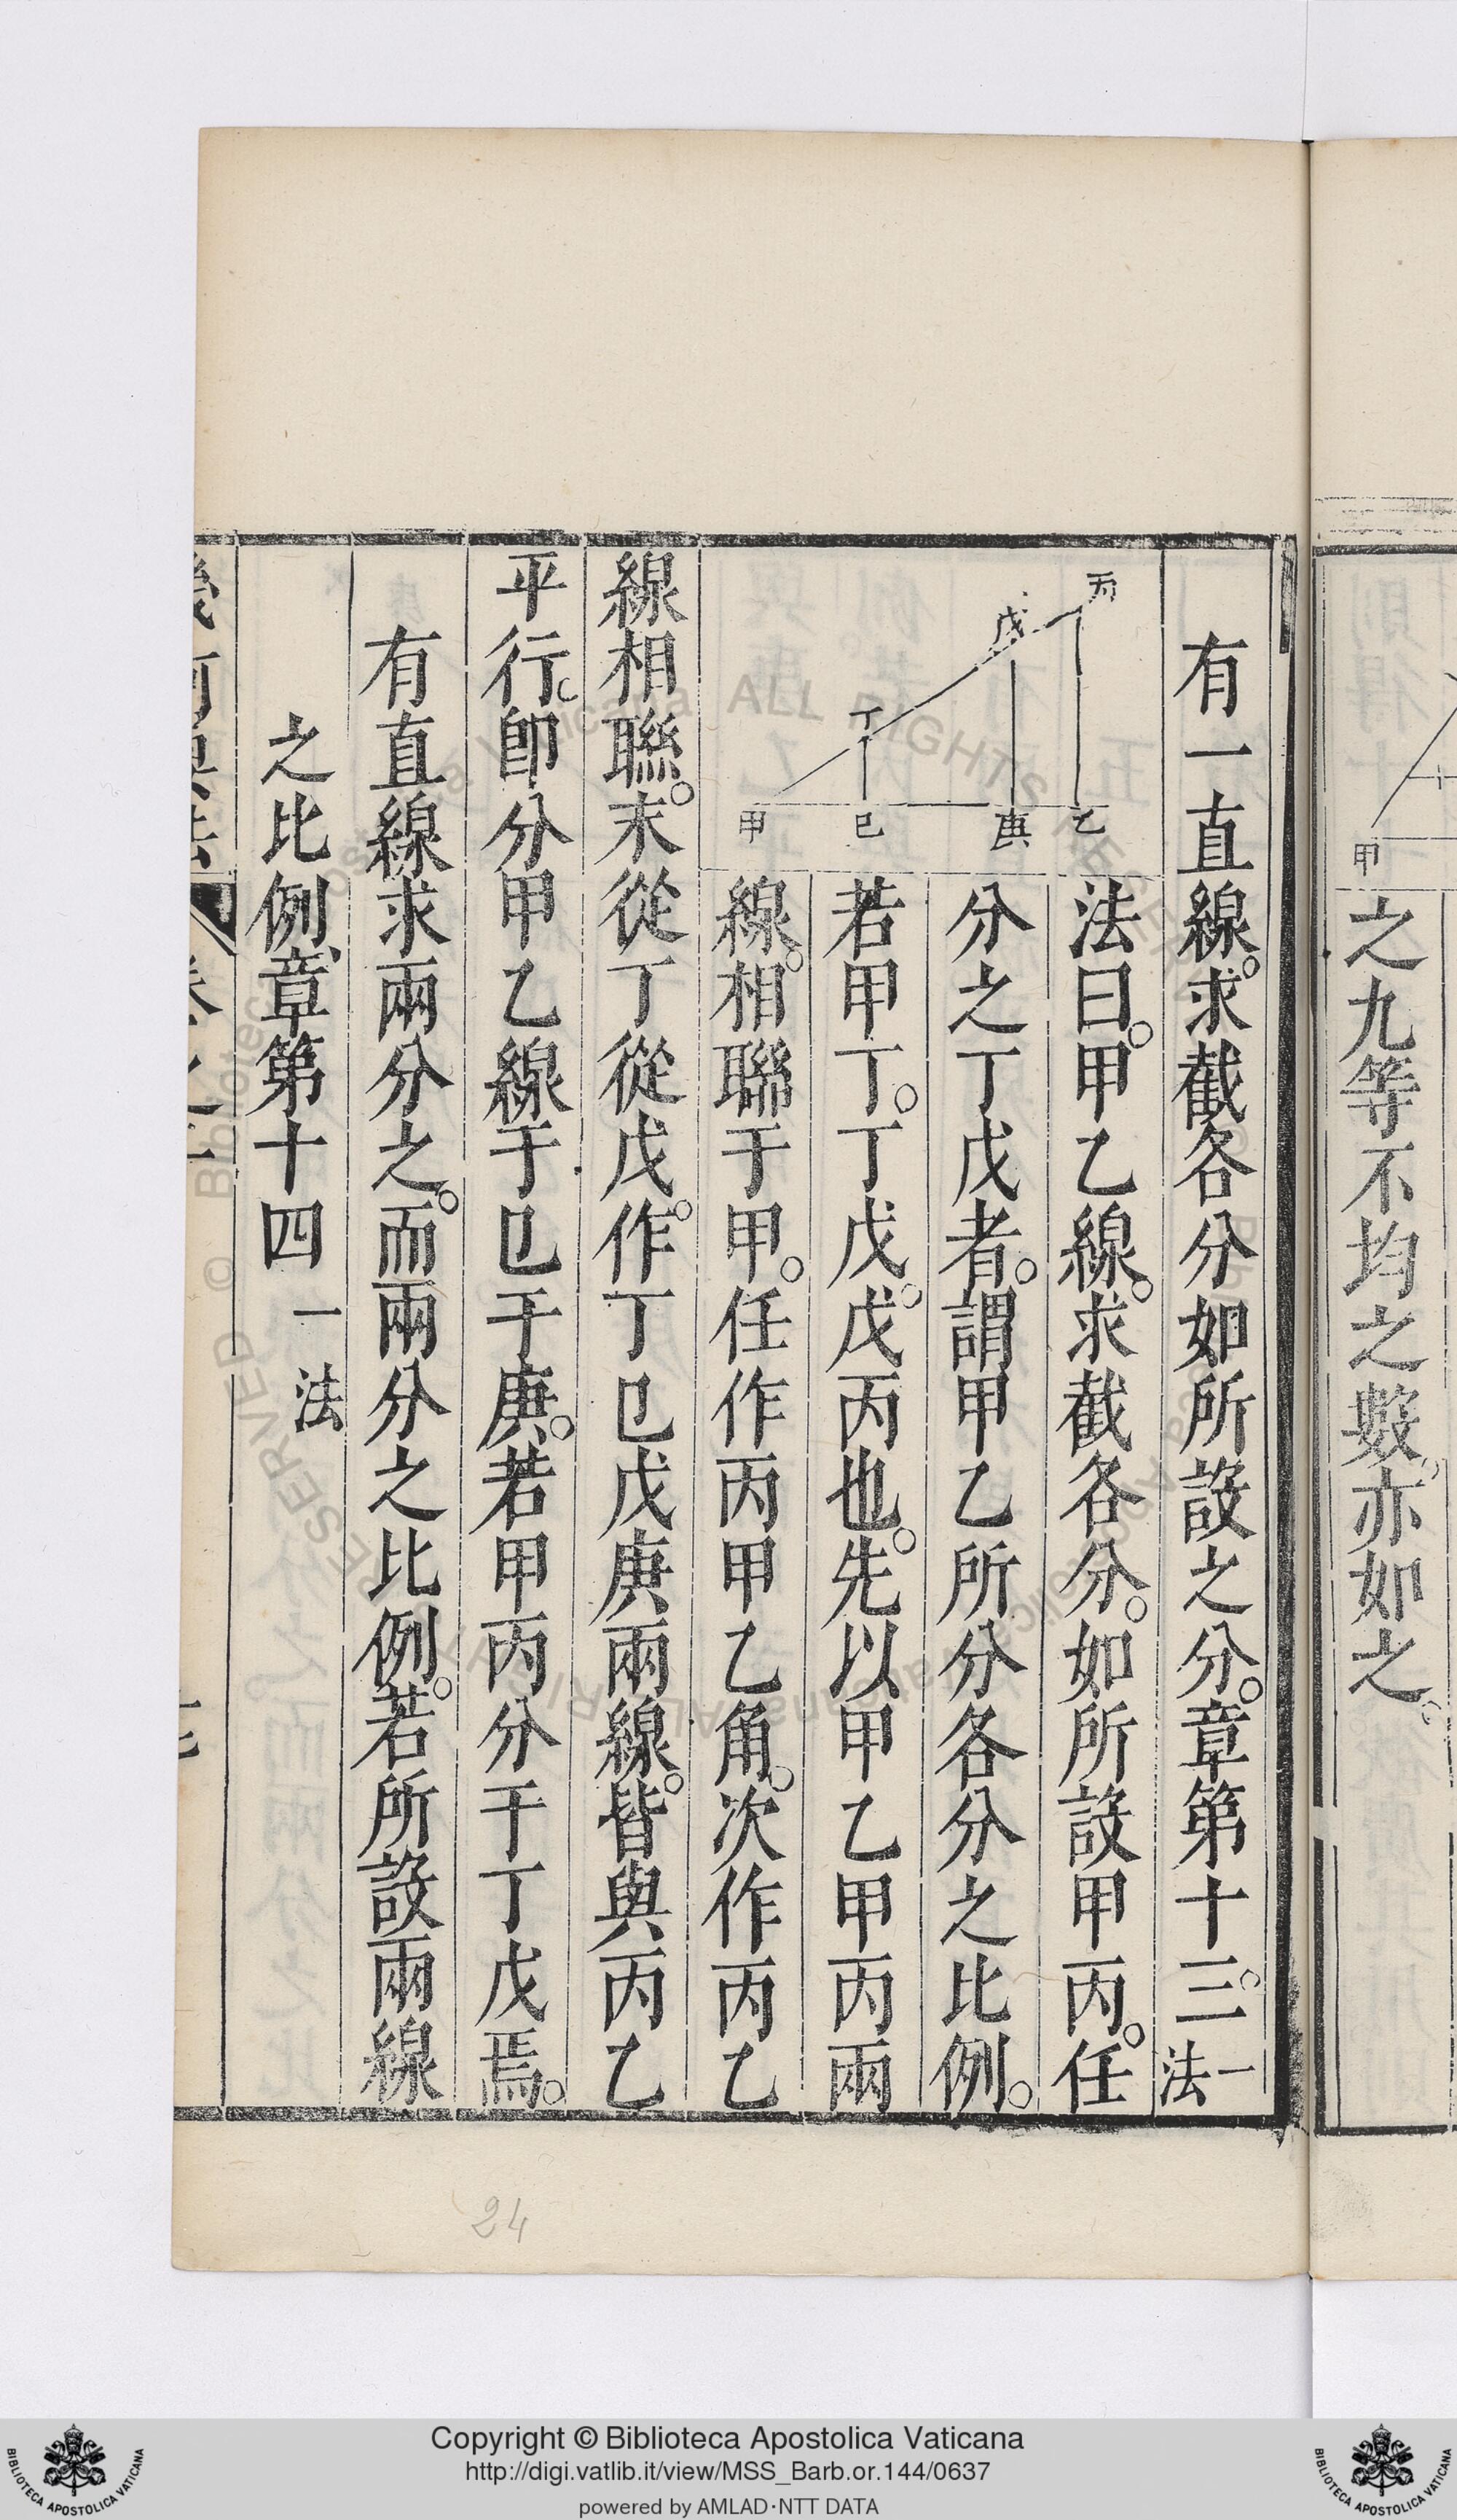 之九等不均之數。亦如之。
甲
有一直線。求截各分如所設之分。章第十三。一法
丙
戊
丁
甲 巳 庚 乙
法曰。甲乙線。求截各分。如所設甲丙。任
分之丁戊者。謂甲乙所分各分之比例。
若甲丁。丁戊。戊丙也。先以甲乙甲丙兩
線。相聯于甲。任作丙甲乙角。次作丙乙
線相聯。末從丁從戊。作丁巳戊庚兩線。皆與丙乙
平行。即分甲乙線于巳于庚。若甲丙分于丁戊焉。
有直線求兩分之。而兩分之比例。若所設兩線
之比例、章第十四 一法
24
Copyright © Biblioteca Apostolica Vaticana
http://digi.vatlib.it/view/MSS_Barb.or.144/0637
powered by AMLAD·NTT DATA
BIBLIOTECA APOSTOLICA VATICANA
BIBLIOTECA APOSTOLICA VATICANA